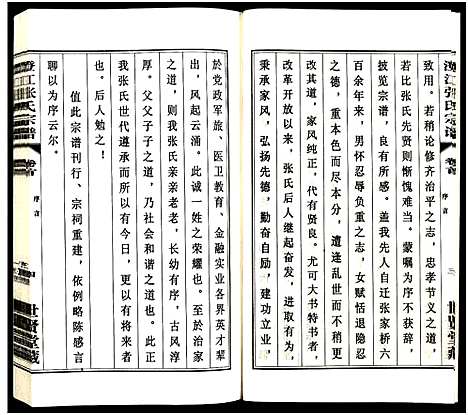 澄江张氏宗谱
卷首
序言
三
世贤堂藏
致用。若稍论修齐治平之志，忠孝节义之道，
若比张氏先贤则惭愧难当。蒙嘱为序不获辞，
披览宗谱，良有所感。盖我先人自迁张家桥六
百余年来，男不忘肩负重之志，女赋恬退馈厨
之德，重本色而尽本力，遭逢乱世而不稍
改其道，家风纯正，代有贤良。尤可大书特书者，
改革开放以来，张氏后人继起奋发，进取有为，
秉承家风，弘扬先德，勤奋自励，建功立业，
于党政军旅、医卫教育、金融实业各界英才辈
出，风起云涌。此诚一姓之荣耀也。至於治家
之道，则我张氏亲亲老老，长幼有序，古风淳
厚。父父子子之道，乃社会和谐之道也。此正
我张氏世代遵承以有今日，更当以有将来者
也。后人勉之！
值此宗谱刊行、宗祠重建，依例略陈感言
聊以为序云尔。
澄江张氏宗谱
卷首
序言
四
世贤堂藏